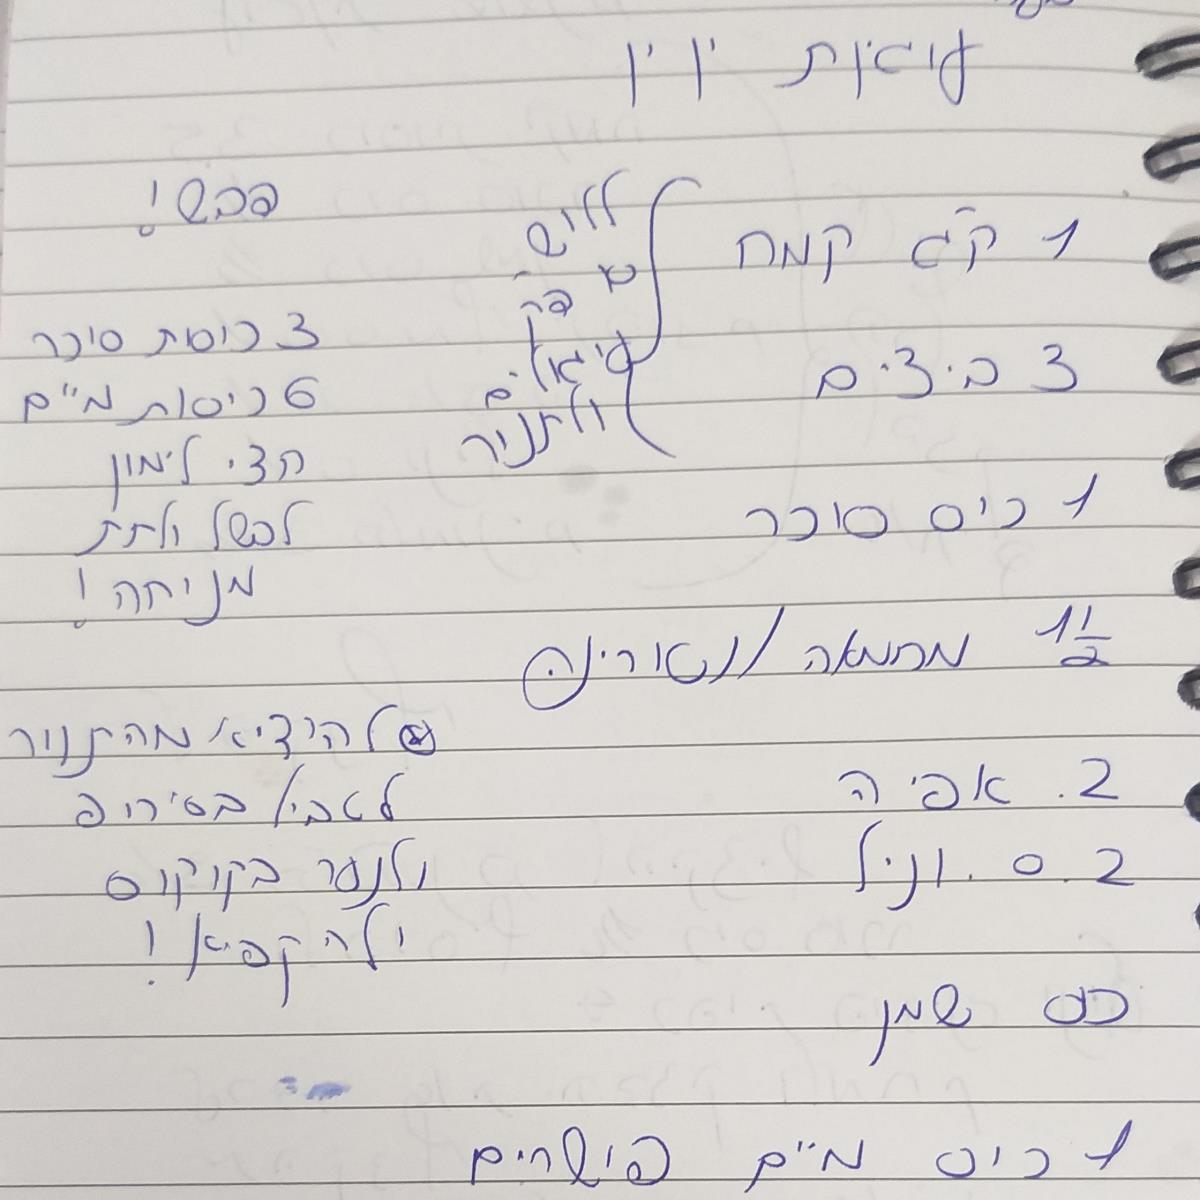 עוגיות יו יו
1 ק"ג קמח
3 ביצים
1 כוס סוכר
1 1/2 מחמאה /
2. אפיה
2. ס. וניל
כוס שמן
1 כוס מים פושרים
ללוש
ולתנור
בכש!
3 כוסת סוכר
6 כוסות מים
חצי לימון
לבשל ולתת
מניחה!
להוציא מהתנור
לטביל בסירופ
ולנער בקוקוס
ולהקפיא!